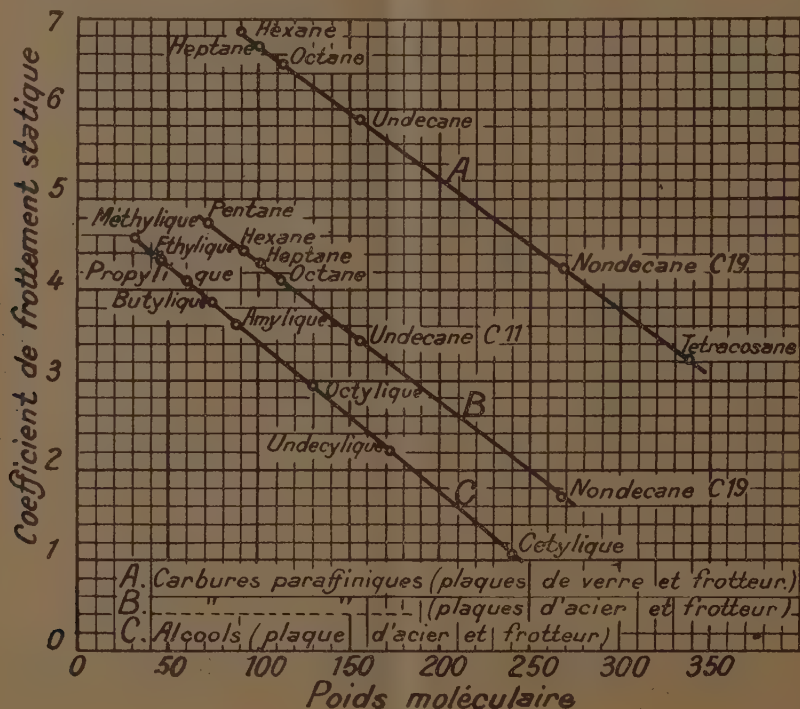 Coefficient de frottement statique
7
6
5
4
3
2
1
0
Hexane
Heptane
Octane
Undecane
A
Nondecane C19
Tetracosane
Pentane
Hexane
Heptane
Octane
Undecane C11
B
Nondecane C19
Méthylique
Ethylique
Propylique
Butylique
Amylique
Octylique
Undecylique
C
Cetylique
A. Carbures paraffiniques (plaques de verre et frotteur.)
B. " " (plaques d'acier et frotteur)
C. Alcools (plaque d'acier et frotteur)
0 50 100 150 200 250 300 350
Poids moléculaire